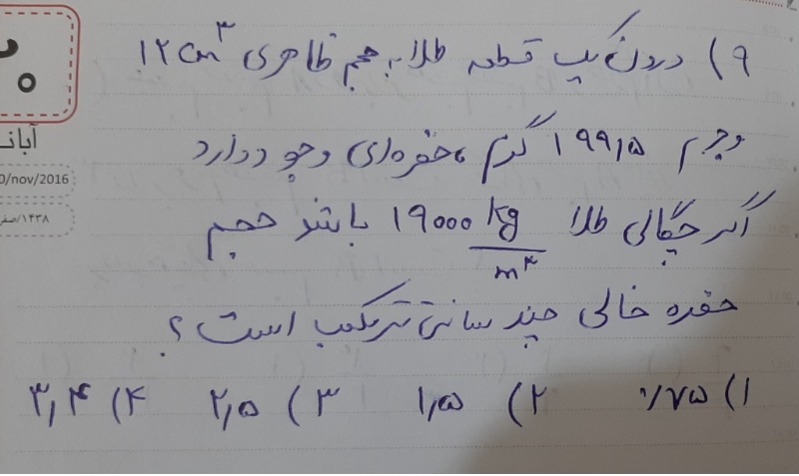 ۹) درون یک قطعه طلا به حجم ظاهری ۱۲ cm³
وجرم ۱۹۹٫۵ گرم ، حفره‌ای وجود دارد
اگر چگالی طلا ۱۹۰۰۰ kg/m³ باشد حجم
حفره خالی چند سانتی‌متر مکعب است ؟
۱) ۰/۷۵ ۲) ۱٫۵ ۳) ۲٫۵ ۴) ۳٫۴
0/nov/2016
۱۴۳۸/صفر